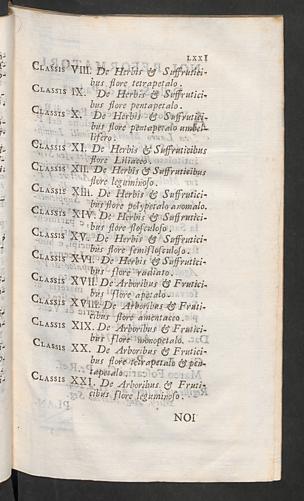 LXXI
CLASSIS VIII. De Herbis & Suffrutici-
bus flore tetrapetalo.
CLASSIS IX. De Herbis & Suffrutici-
bus flore pentapetalo.
CLASSIS X. De Herbis & Suffrutici-
bus flore pentapetalo umbel-
lifero.
CLASSIS XI. De Herbis & Suffruticibus
flore Liliaceo.
CLASSIS XII. De Herbis & Suffruticibus
flore leguminoso.
CLASSIS XIII. De Herbis & Suffrutici-
bus flore polypetalo anomalo.
CLASSIS XIV. De Herbis & Suffrutici-
bus flore flosculoso.
CLASSIS XV. De Herbis & Suffrutici-
bus flore semiflosculoso.
CLASSIS XVI. De Herbis & Suffrutici-
bus flore radiato.
CLASSIS XVII. De Arboribus & Frutici-
bus flore apetalo.
CLASSIS XVIII. De Arboribus & Fruti-
cibus flore amentaceo.
CLASSIS XIX. De Arboribus & Frutici-
bus flore monopetalo.
CLASSIS XX. De Arboribus & Frutici-
bus flore tetrapetalo & pen-
tapetalo.
CLASSIS XXI. De Arboribus & Fruti-
cibus flore leguminoso.
NOI